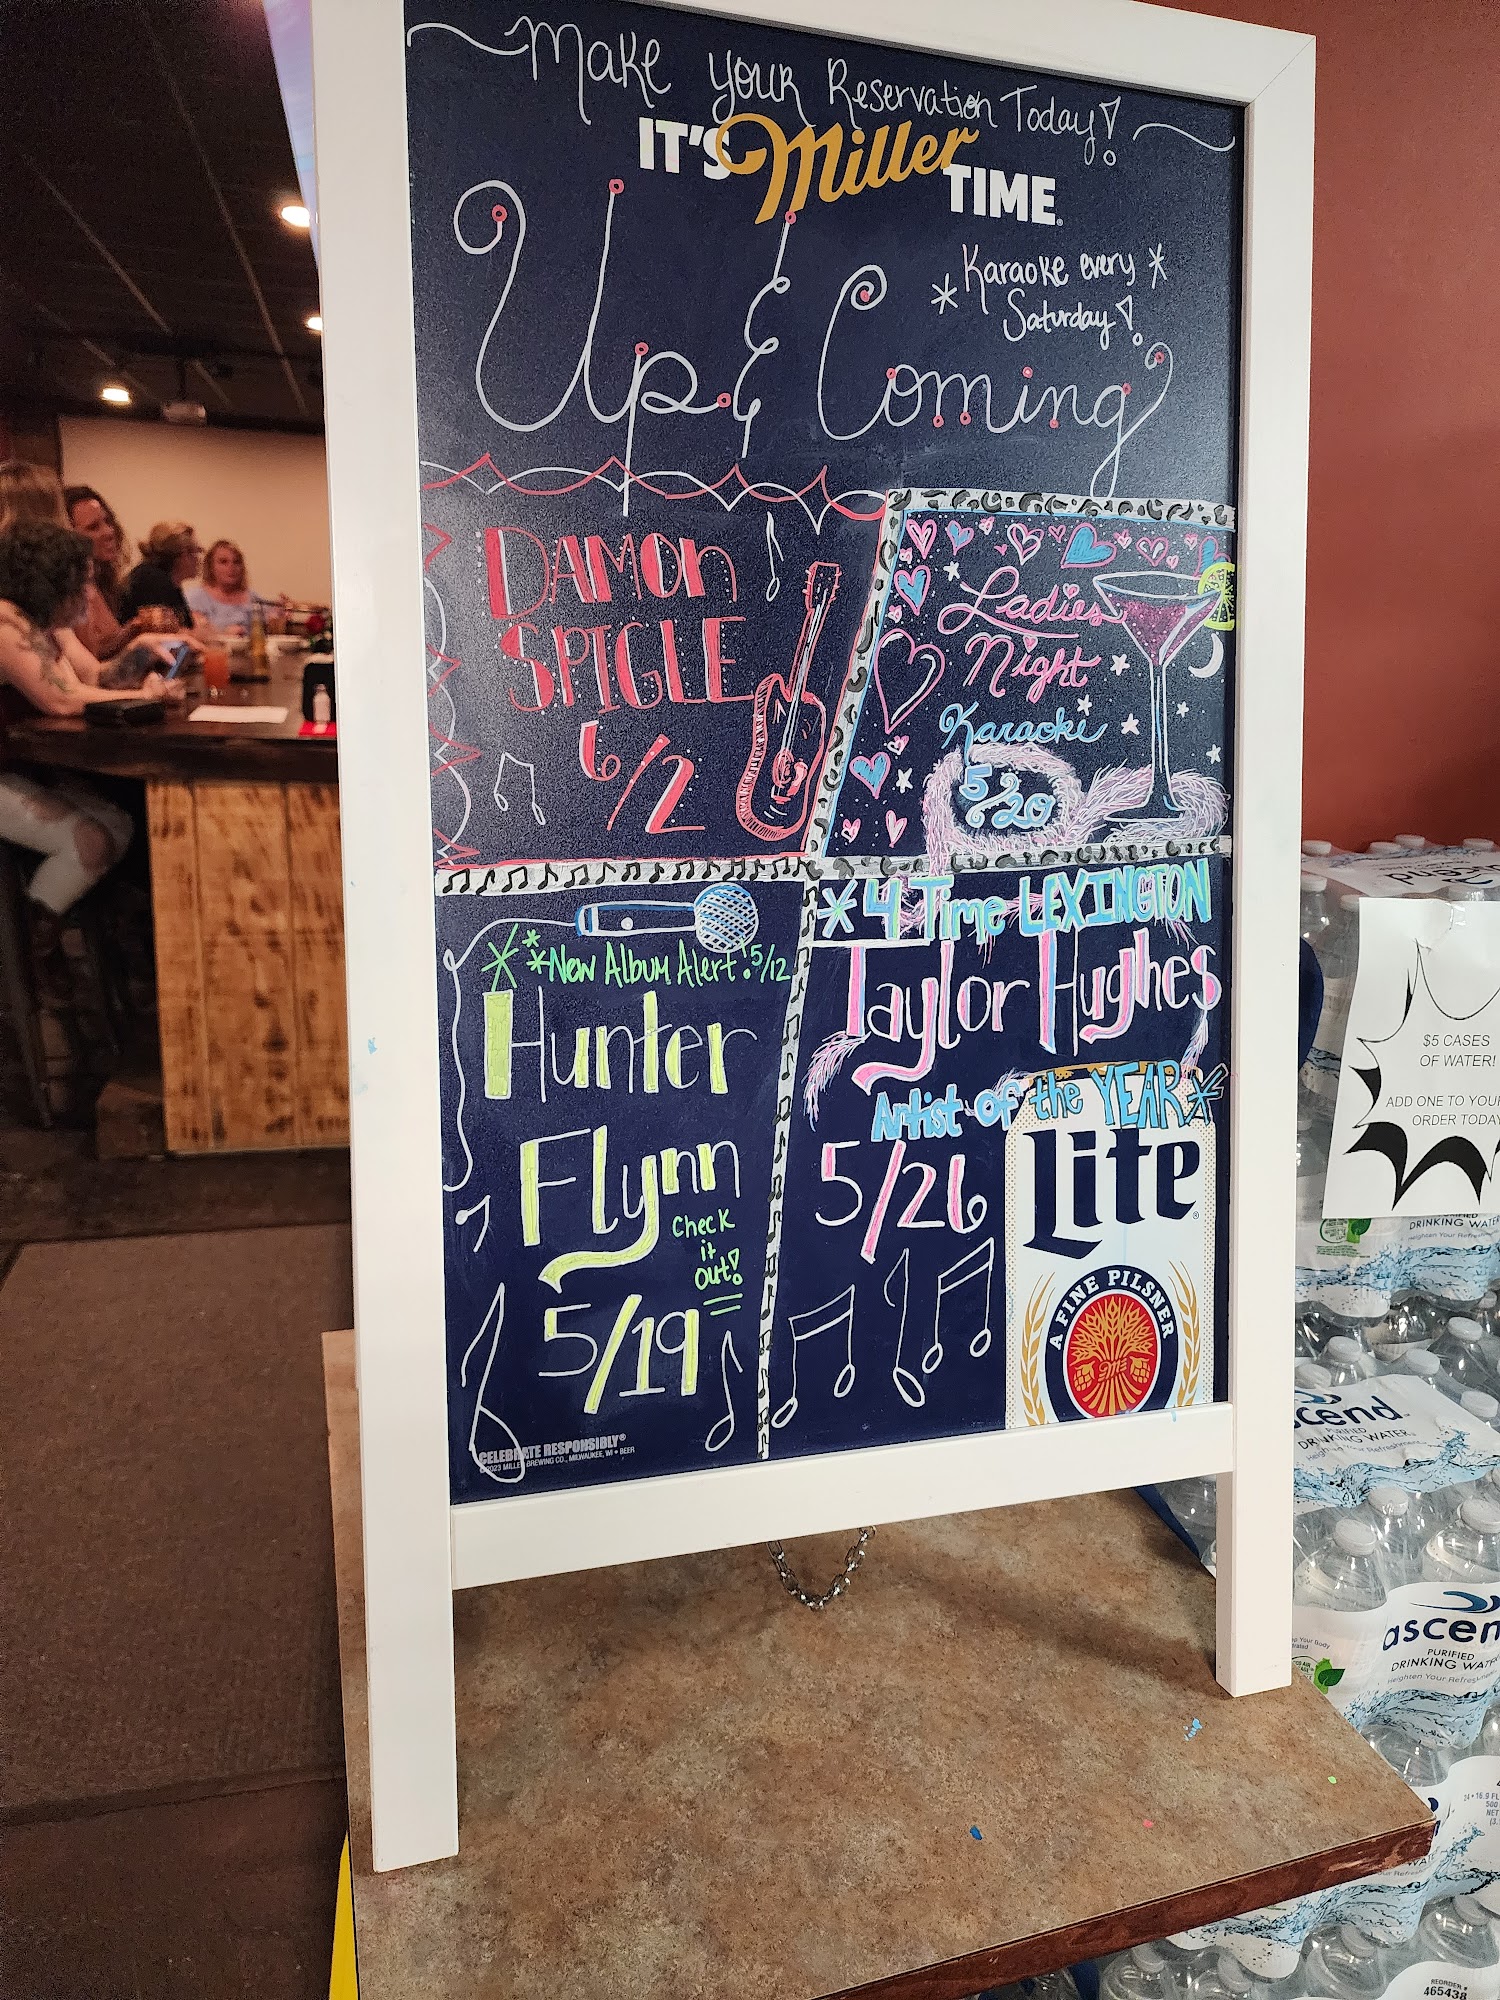 Make your Reservation Today!
IT'S Miller TIME
*Karaoke every*
Saturday!
Up & Coming
DAMON
SPIGLE
6/2
Ladies
Night
Karaoke
5/20
**New Album Alert! 5/12
Hunter
Flynn
Check
it
Out!
5/19
*4 Time LEXINGTON
Taylor Hughes
Artist of the YEAR*
5/26
Lite
A FINE PILSNER
CELEBRATE RESPONSIBLY®
©2023 MILLER BREWING CO., MILWAUKEE, WI • BEER
$5 CASES
OF WATER!
ADD ONE TO YOUR
ORDER TODAY
DRINKING WATER
ascend
PURIFIED
DRINKING WATER
ascend
PURIFIED
DRINKING WATER
Heighten Your Refreshment
REORDER #
465438